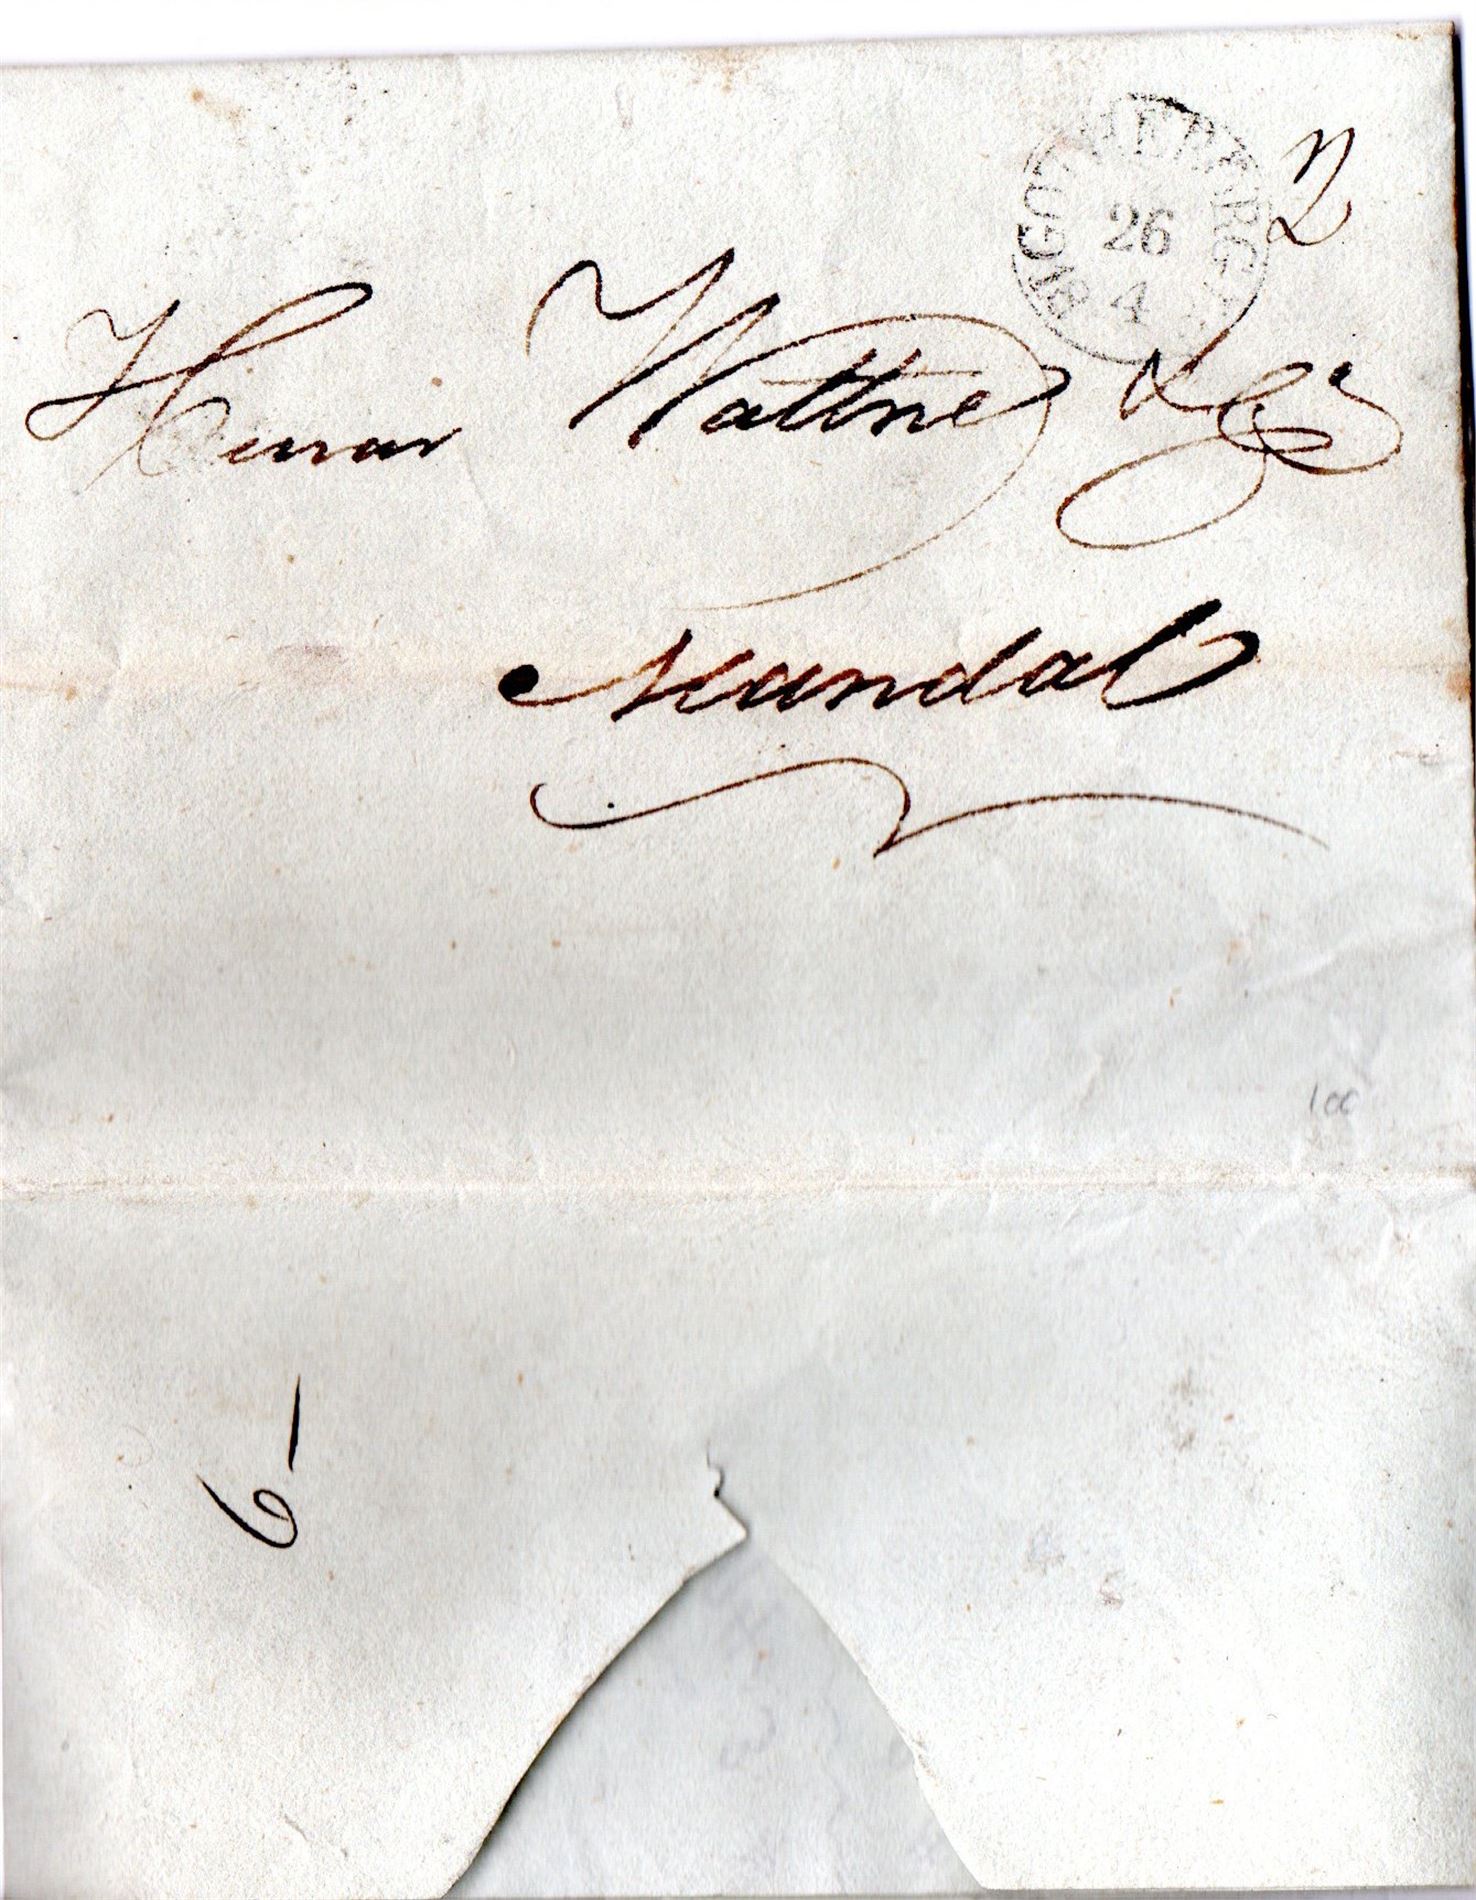 GOTHEBERG
26
4
2
Herrar Wattne & C:o
Mandal
100
6 –